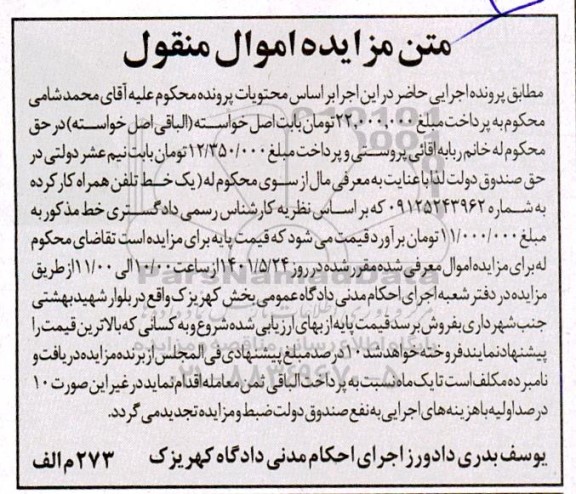 متن مزایده اموال منقول
مطابق پرونده اجرایی حاضر در این اجرا بر اساس محتویات پرونده محکوم علیه آقای محمد شامی
محکوم به پرداخت مبلغ ۲۲,۰۰۰,۰۰۰ تومان بابت اصل خواسته (الباقی اصل خواسته) در حق
محکوم له خانم ربابه آقائی پروستی و پرداخت مبلغ ۱۲/۳۵۰/۰۰۰ تومان بابت نیم عشر دولتی در
حق صندوق دولت لذا با عنایت به معرفی مال از سوی محکوم له ( یک خط تلفن همراه کار کرده
به شماره ۰۹۱۲۵۲۴۳۹۶۲ که بر اساس نظریه کارشناس رسمی دادگستری خط مذکور به
مبلغ ۱۱/۰۰۰/۰۰۰ تومان برآورد قیمت می شود که قیمت پایه برای مزایده است تقاضای محکوم
له برای مزایده اموال معرفی شده مقرر شده در روز ۱۴۰۱/۵/۲۴ از ساعت ۱۰/۰۰ الی ۱۱/۰۰ از طریق
مزایده در دفتر شعبه اجرای احکام مدنی دادگاه عمومی بخش کهریزک واقع در بلوار شهید بهشتی
جنب شهرداری بفروش برسد قیمت پایه از بهای ارزیابی شده شروع و به کسانی که بالاترین قیمت را
پیشنهاد نمایند فروخته خواهد شد ۱۰ درصد مبلغ پیشنهادی فی المجلس از برنده مزایده دریافت و
نامبرده مکلف است تا یک ماه نسبت به پرداخت الباقی ثمن معامله اقدام نماید در غیر این صورت ۱۰
درصد اولیه با هزینه های اجرایی به نفع صندوق دولت ضبط و مزایده تجدید می گردد.
یوسف بدری دادورز اجرای احکام مدنی دادگاه کهریزک ۲۷۳ م الف
ParsNamadData